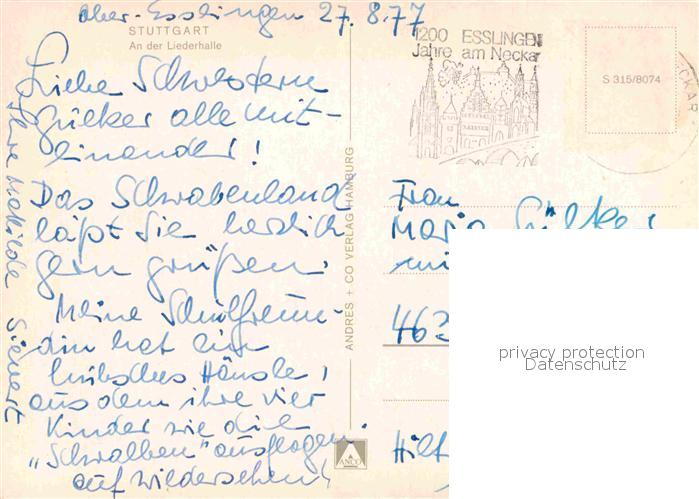 Ober-Esslingen 27.8.77
STUTTGART
An der Liederhalle
Liebe Schwestern
Gülker alle mit-
einander!
Das Schwabenland
läßt Sie herzlich
gern grüßen.
Meine Schulfreun-
din hat ein
hübsches Häusle,
aus dem ihre vier
Kinder wie die
„Schwalben" ausflogen.
auf wiedersehen!
Ihre Mathilde Sievert
ANDRES + CO VERLAG HAMBURG
ANCO
1200 ESSLINGEN
Jahre am Neckar
S 315/8074
Frau
Maria Gülker
463
privacy protection
Datenschutz